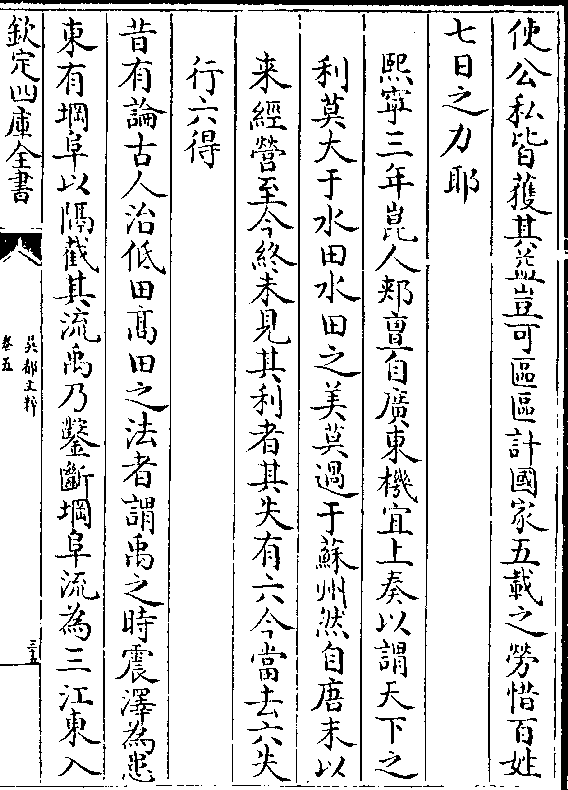 使公私皆獲其益豈可區區計國家五載之勞惜百姓
七日之力耶
熙寧三年崑人郟亶自廣東機宜上奏以謂天下之
利莫大于水田水田之美莫過于蘇州然自唐末以
来經營至今終未見其利者其失有六今當去六失
行六得
昔有論古人治低田髙田之法者謂禹之時震澤為患
東有堈阜以隔截其流禹乃鑿斷堈阜流為三江東入
欽定四庫全書
吳都文粹
卷五
三五